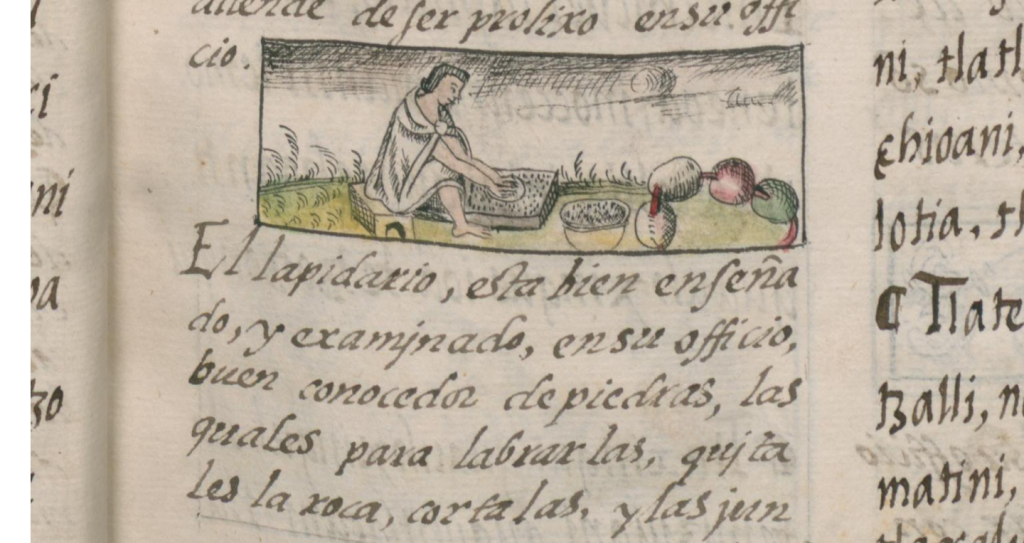 attende de ser prolixo en su offi
cio.
El lapidario, esta bien enseña
do, y examjnado, en su officio,
buen conocedor de piedras, las
quales para labrar las, qujta
les la roca, corta las, y las jun
ni, tlatl
chioani,
lotia, tl
Tlate
tzalli, n
matini,